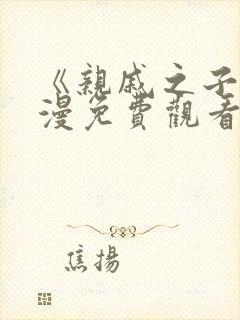 《親戚之子
漫免費觀看
焦揚